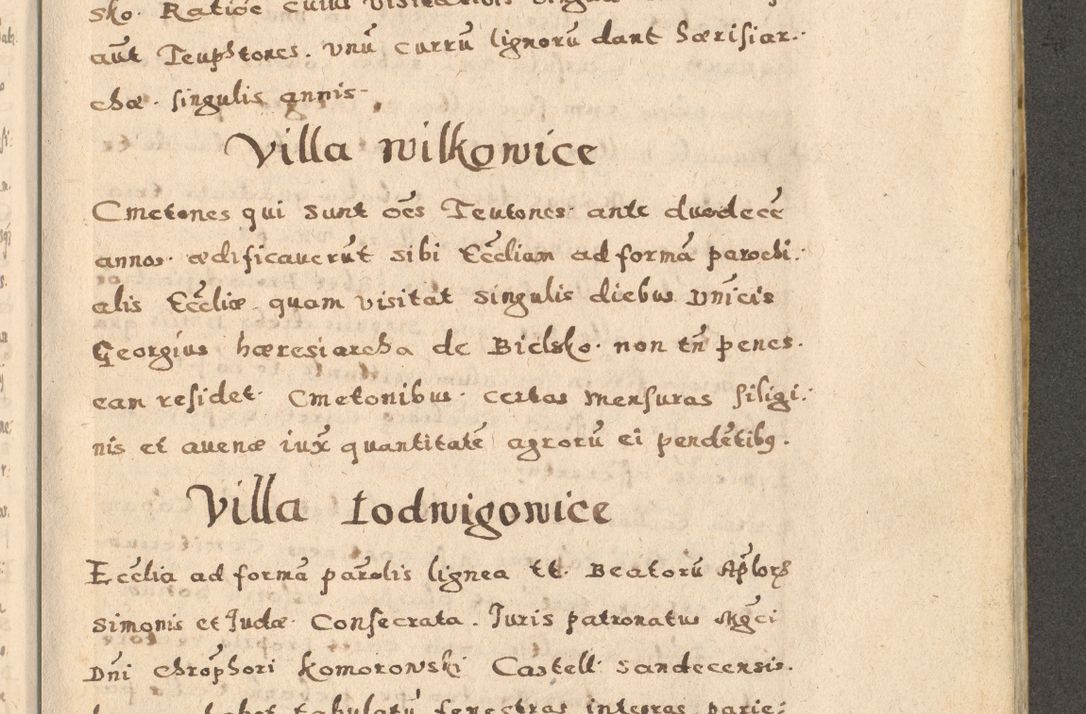 sko. Ratiōe cuius visitationis
aūt Teuptones. vnū currū lignorū dant hærisiar.
chæ. singulis annis.
Villa Wilkowice
Cmetones qui sunt oēs Teutones ante duodecē
annos. ædificauerūt sibi Eccliam ad formā parochi.
alis Eccliæ quam visitat singulis diebus Dnīcis
Georgius hæresiarcha de Bielsko. non tñ penes.
eam residet. Cmetonibus. certas mensuras siligi.
nis et auenæ iux quantitatē agrorū ei pendētibꝯ.
Villa Łodwigowice
Ecclia ad formā parolis lignea tt. Beatorū Aplorꝝ
Simonis et Judæ. Consecrata. Juris patronatus Mgci
Dñi Chrophori Komorowski Castell. Sandecensis.
habet tabulatū fenestras integras parie: